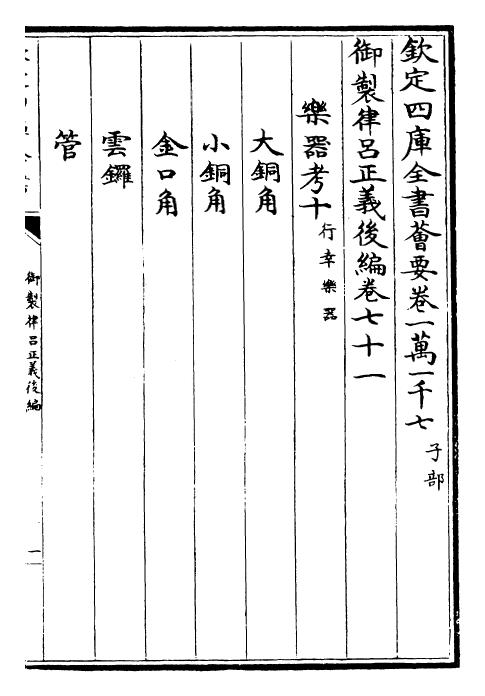 欽定四庫全書薈要卷一萬一千七 子部
御製律呂正義後編卷七十一
樂器考十 行幸樂器
大銅角
小銅角
金口角
雲鑼
管
御製律呂正義後編
一